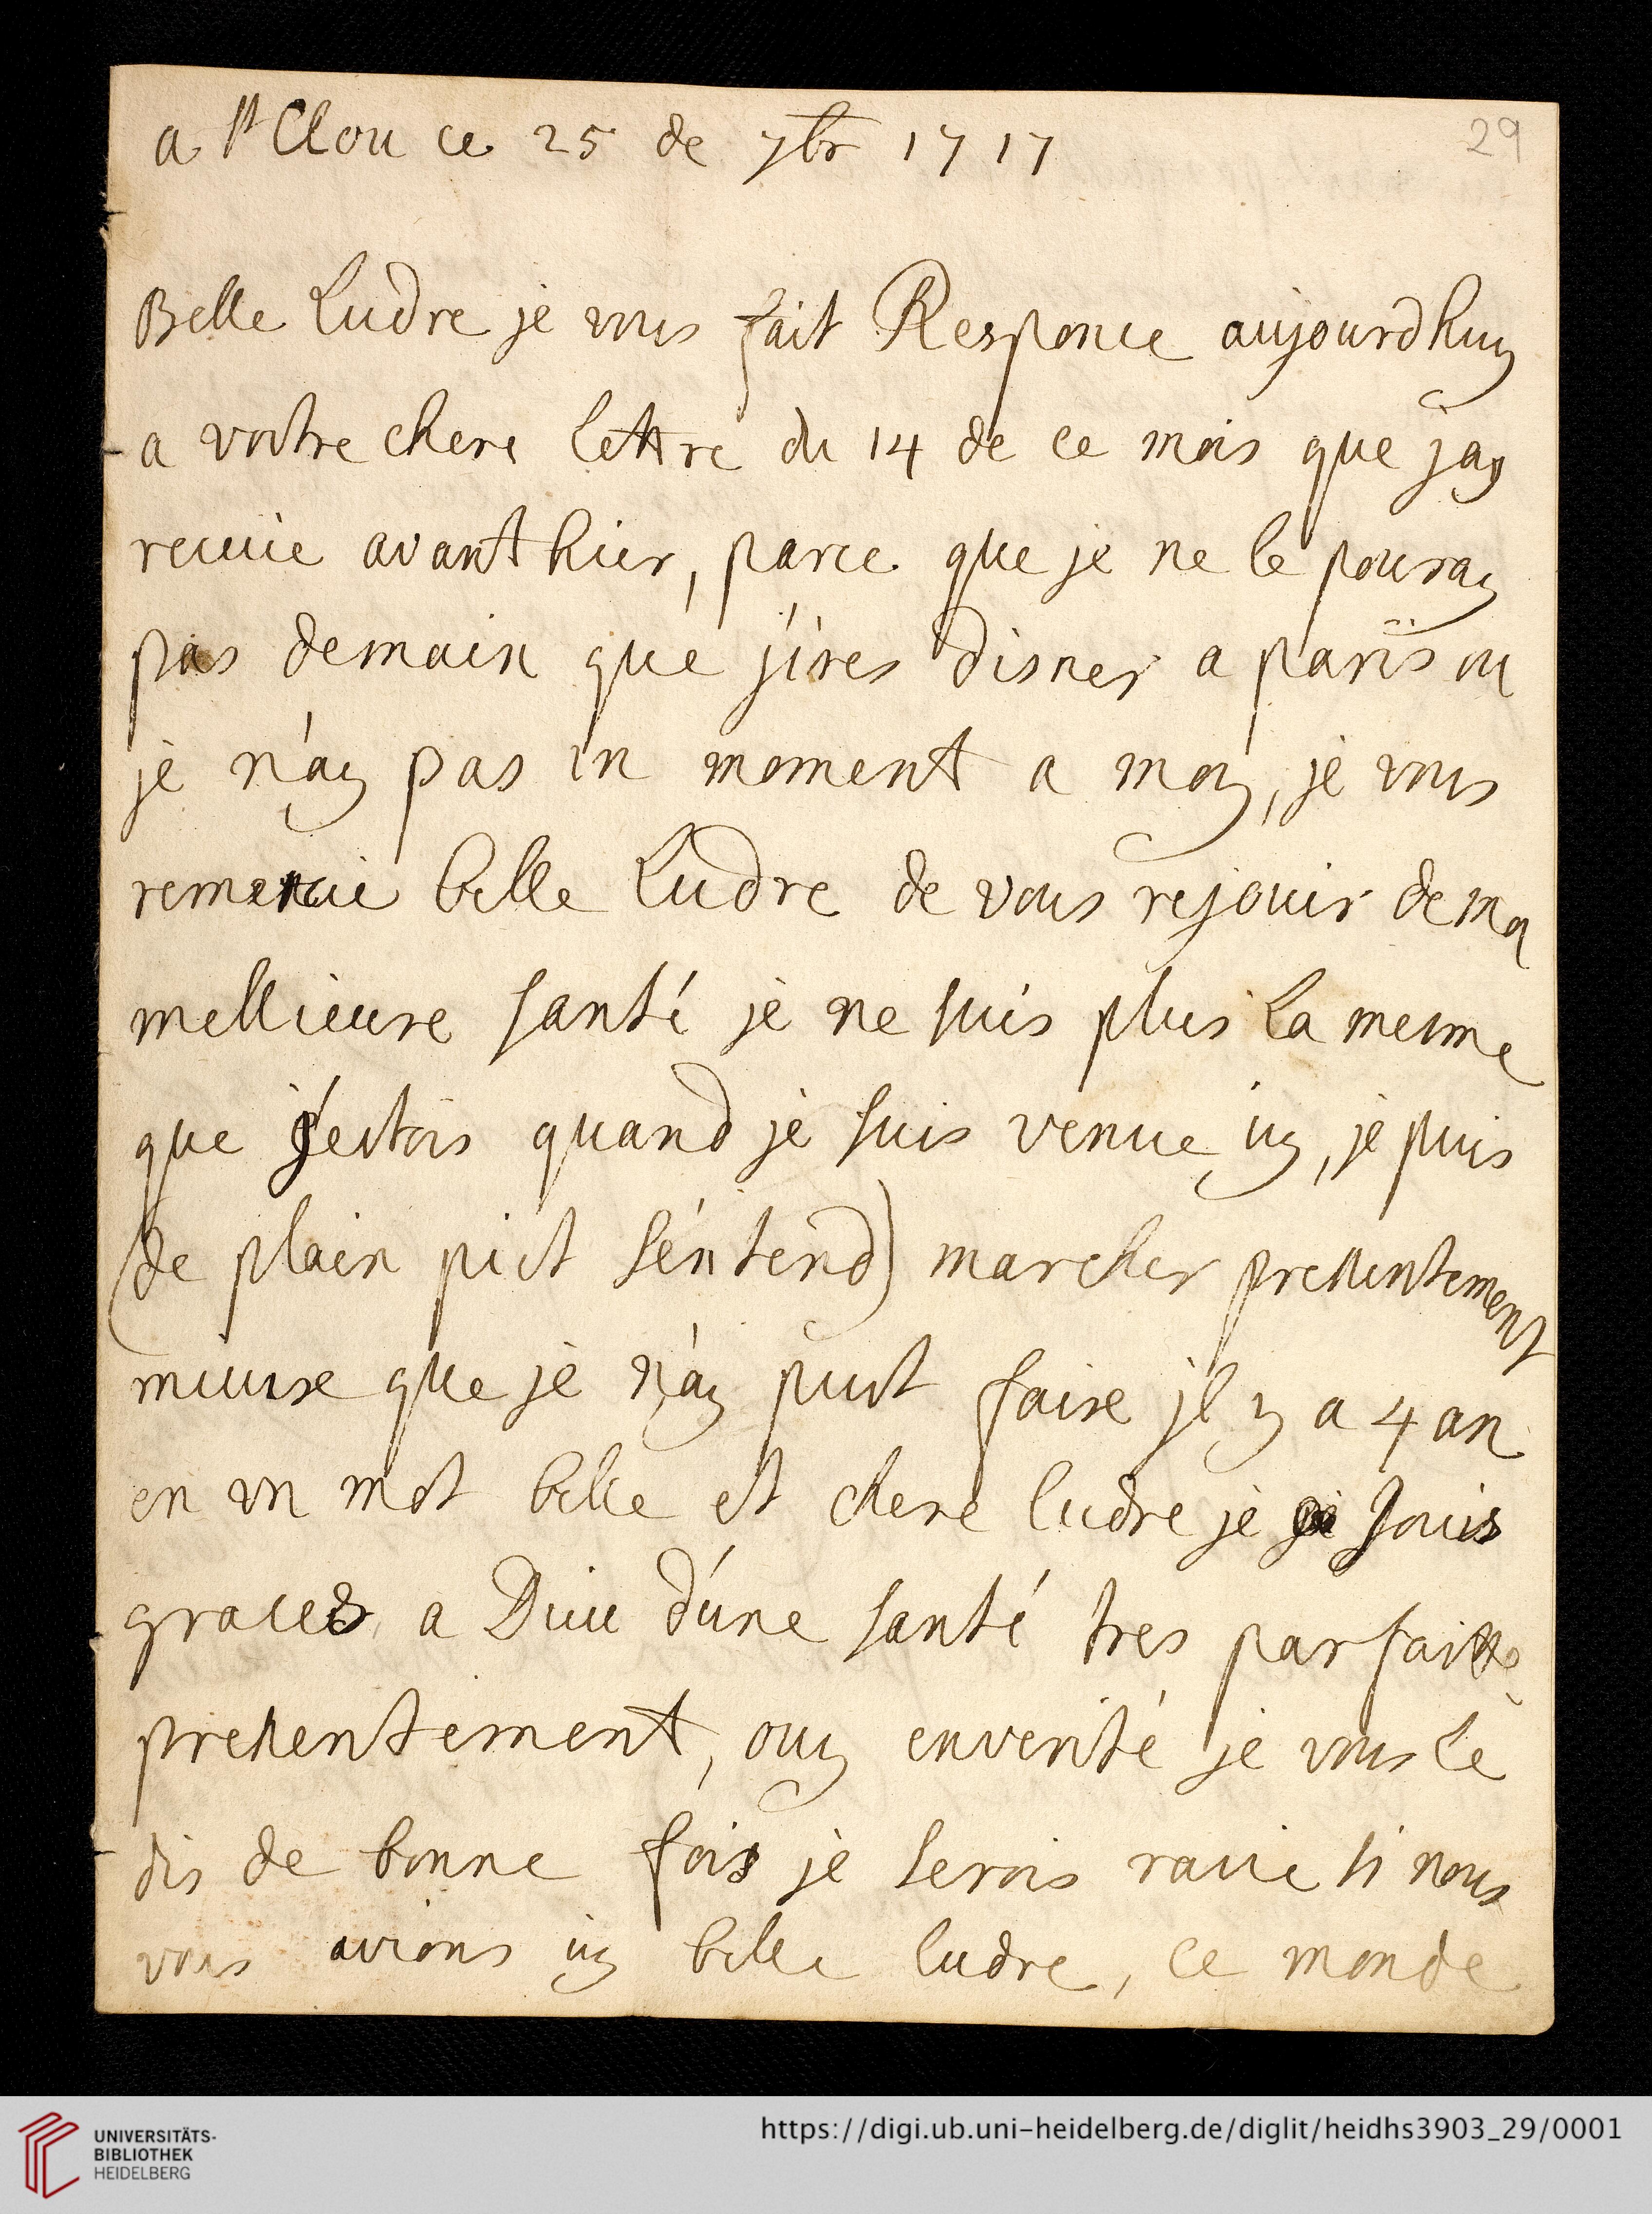 a st Clou ce 25 de 7br 1717
29
Belle Ludre je vous fait Responce aujourdhuy
a vostre chere lettre du 14 de ce mois que jay
receüe avanthier, parce que je ne le pouray
pas demain que j'ires disner a pariis ou
je n'ay pas un moment a moy, je vous
remercie belle Ludre de vous rejouir de ma
mellieure santé je ne suis plus La mesme
que j'estois quand je suis venue icy, je puis
(de plain piet s'entend) marcher pressentement
mieux que je n'ay peust faire jl y a 4 an
en un mot belle et chere ludre je Jouis
graces a Dieu d'une santé tres parfaitte
pressentement, ouy enverité je vous Le
dis de bonne fois je serois ravie si nous
vous avions icy belle ludre, ce monde
UNIVERSITÄTS-
BIBLIOTHEK
HEIDELBERG
https://digi.ub.uni-heidelberg.de/diglit/heidhs3903_29/0001